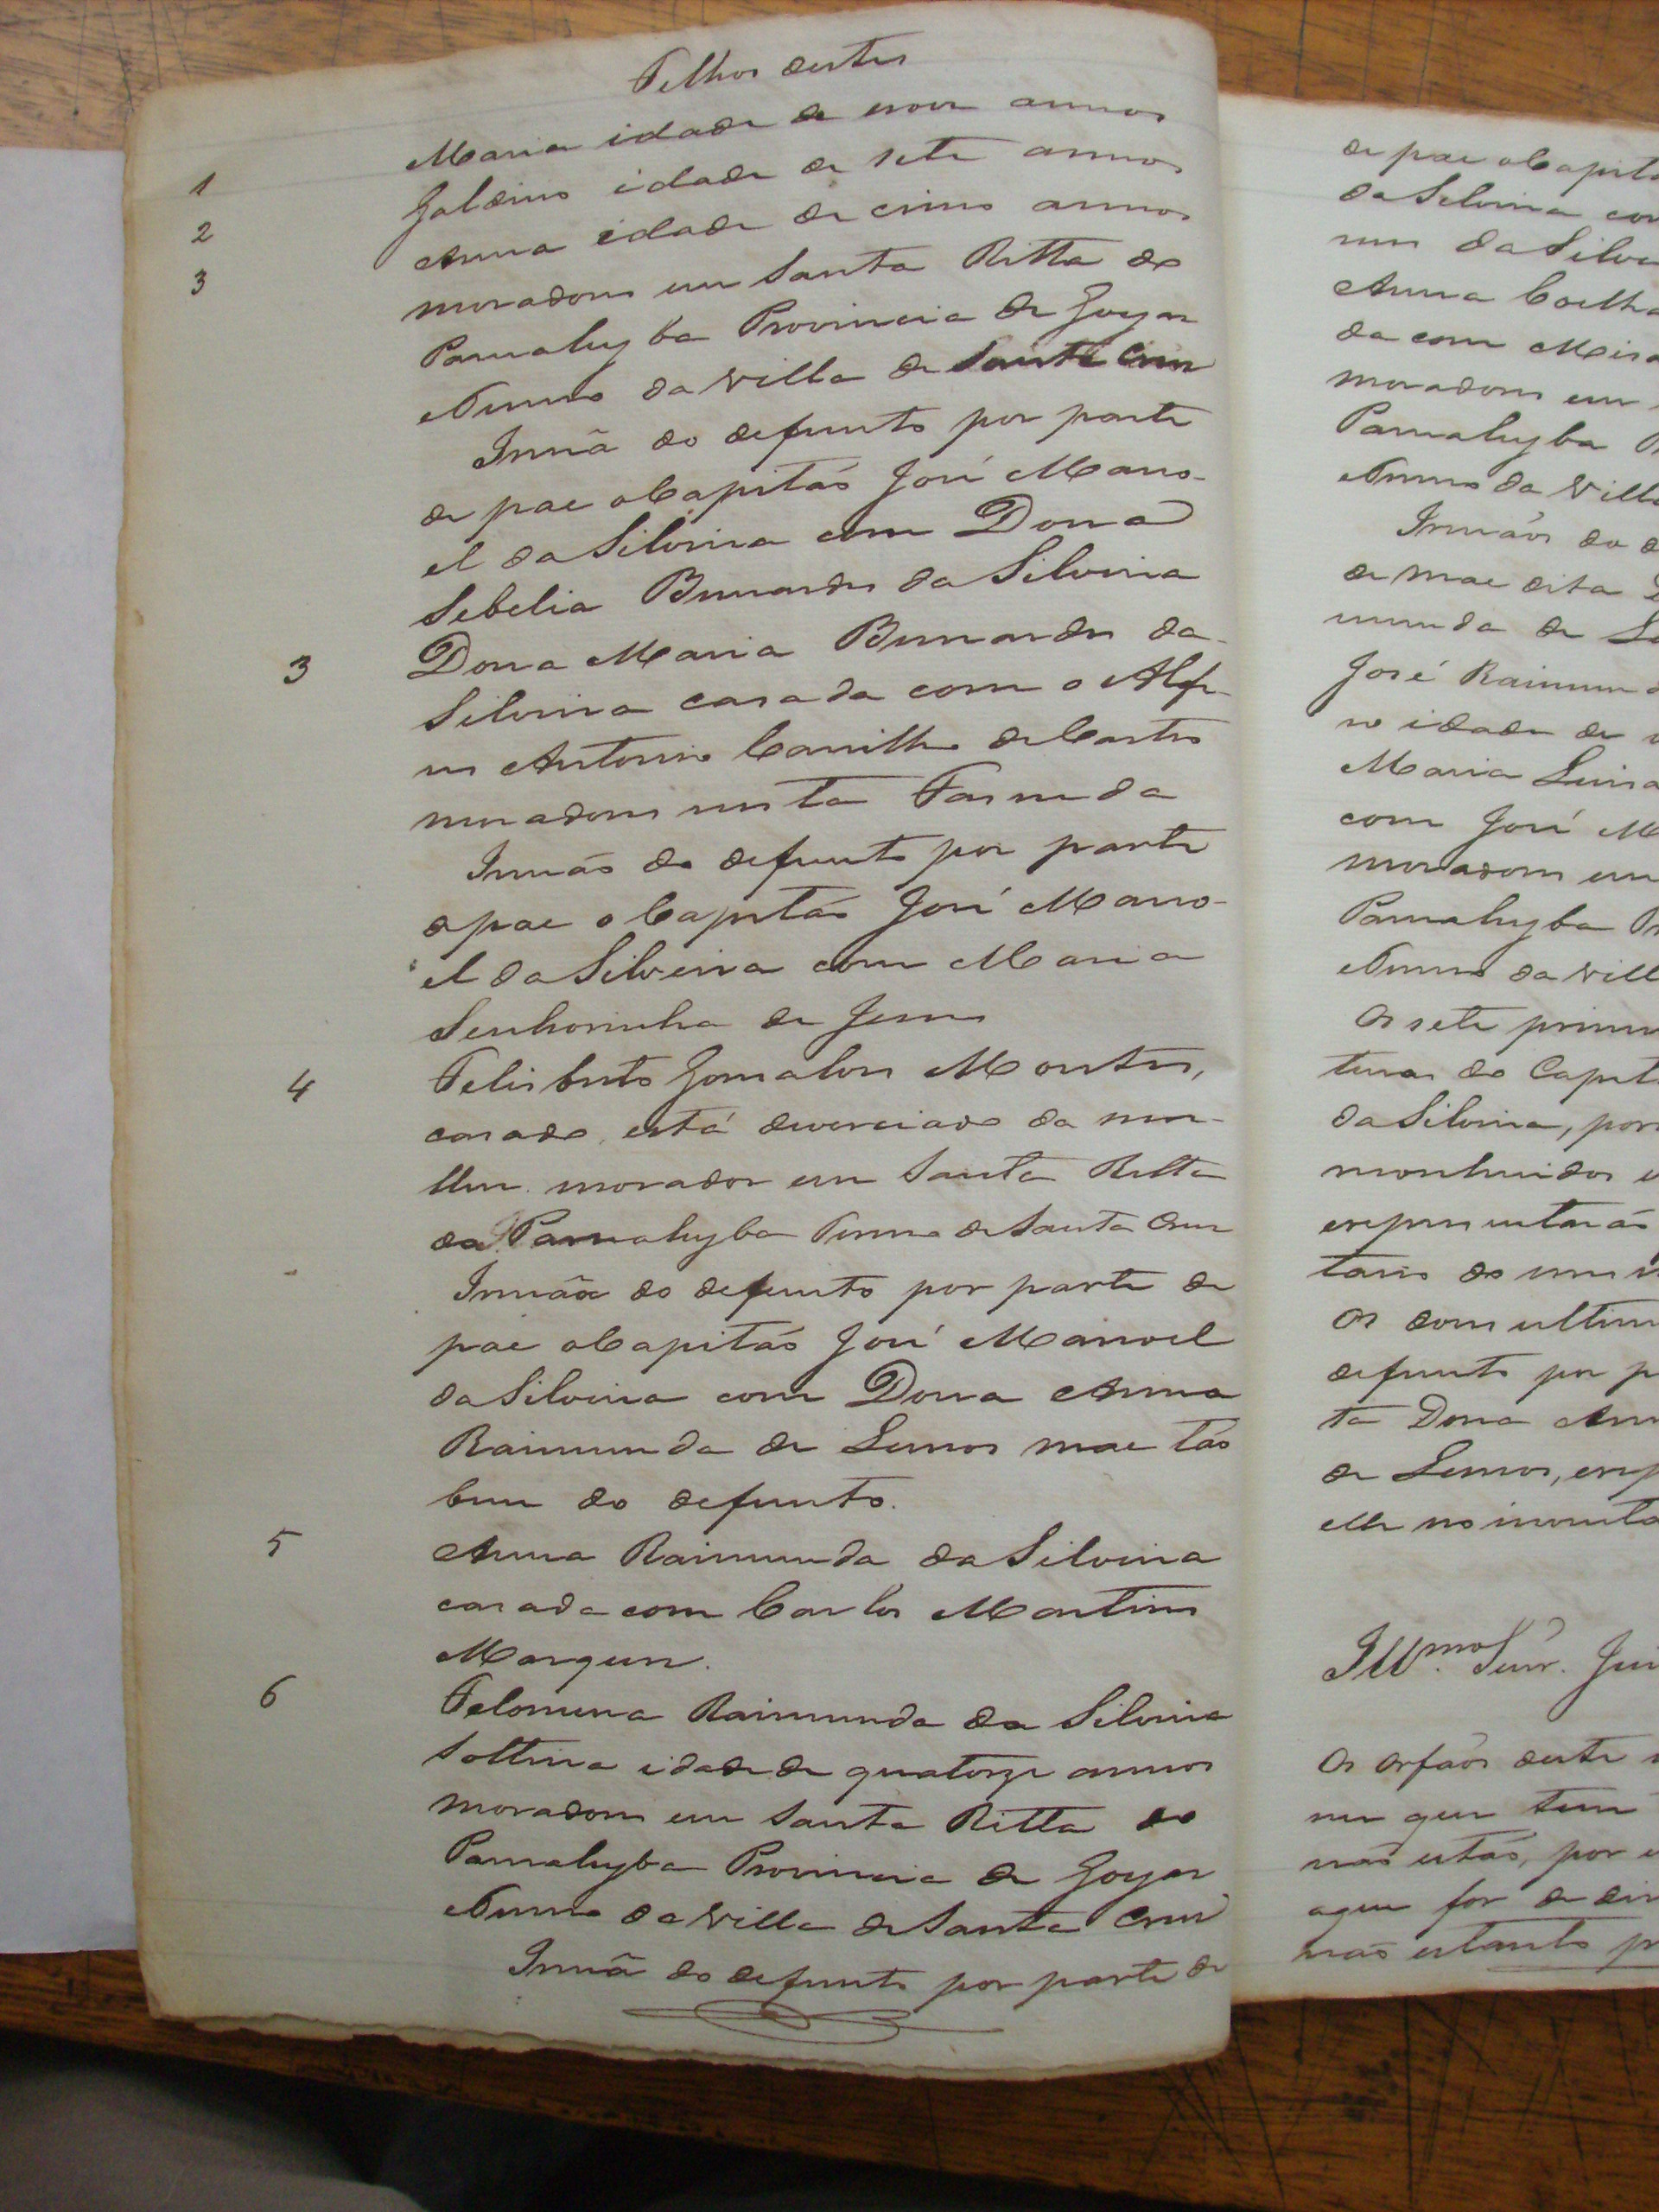 Filhos destes
1 Maria idade de nove annos
2 Galdino idade de sete annos
3 Anna idade de cinco annos
moradores em Santa Ritta do
Parnahyba Provincia de Goyas
Termo da Villa de Santa Cruz
Irmã do defunto por parte
de pae o Capitão José Mano-
el da Silveira com Dona
Sebelia Bernardes da Silveira
3 Dona Maria Bernardes da
Silveira casada com o Alfe-
res Antonio Carrilho de Castro
moradores nesta Fasenda
Irmão do defunto por parte
de pae o Capitão José Mano-
el da Silveira com Maria
Senhorinha de Jesus
4 Felisberto Gonsalves Montes,
casado, está devorciado da mu-
lher morador em Santa Ritta
da Parnahyba Termo de Santa Cruz
Irmãa do defunto por parte de
pae o Capitão José Manoel
da Silveira com Dona Anna
Raimunda de Lemos mae tão
bem do defunto.
5 Anna Raimunda da Silveira
casada com Carlos Martins
Marques.
6 Felomena Raimunda da Silveira
solteira idade de quatorze annos
moradores em Santa Ritta do
Parnahyba Provincia de Goyas
Termo da Villa de Santa Cruz
Irmã do defunto por parte de
de pae o Capitã
da Silveira com
da Silve
Anna Coelh
da com
moradores em
Parnahyba
Termo da Vill
Irmãos do d
de mae dita
munda de
José Raimund
no idade de
Maria Luisa
com José M
moradores em
Parnahyba Pr
Termo da Vill
Os sete prime
do Capit
da Silveira, por
tario do
Os dous ultim
defunto por p
ta Dona Ann
de Lemos,
elle no inventa
Illmo. Senr. Jui
Os orfãos deste
que tem
não estão, por
a que for de dir
não estando p